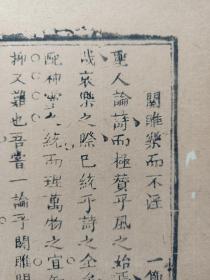 關雎樂而不淫 一節
聖人論詩而極贊乎風之始焉
哀樂之際已統乎詩之全
配神靈之統而理萬物之宜
抑又難也吾嘗一論乎關雎